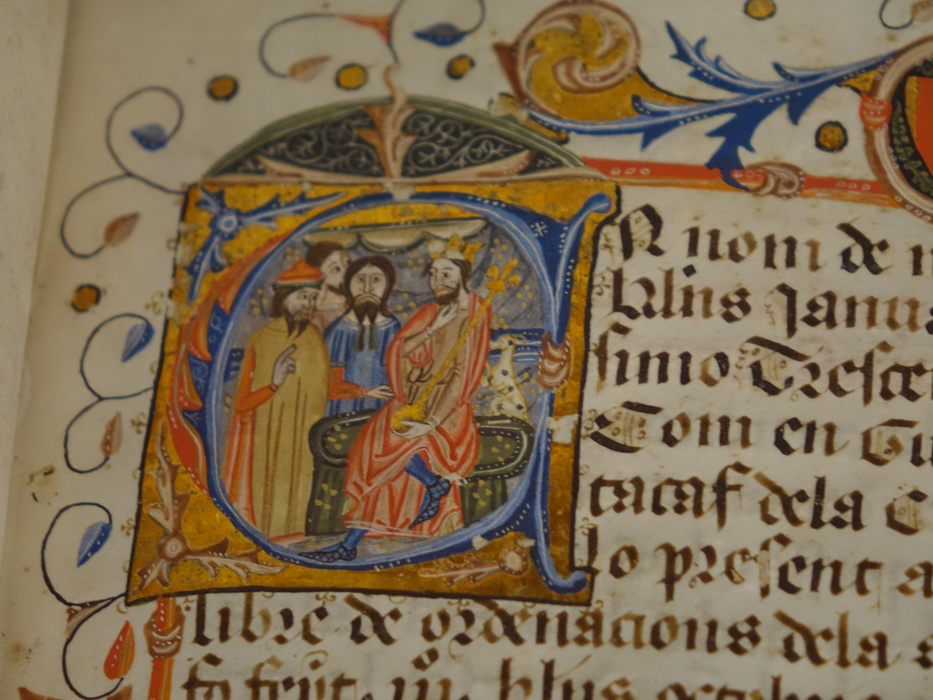 EN nom de
Janua
simo Trescen
Com en Gu
tacaf dela C
lo present a
libre de ordenacions dela
fo feyt